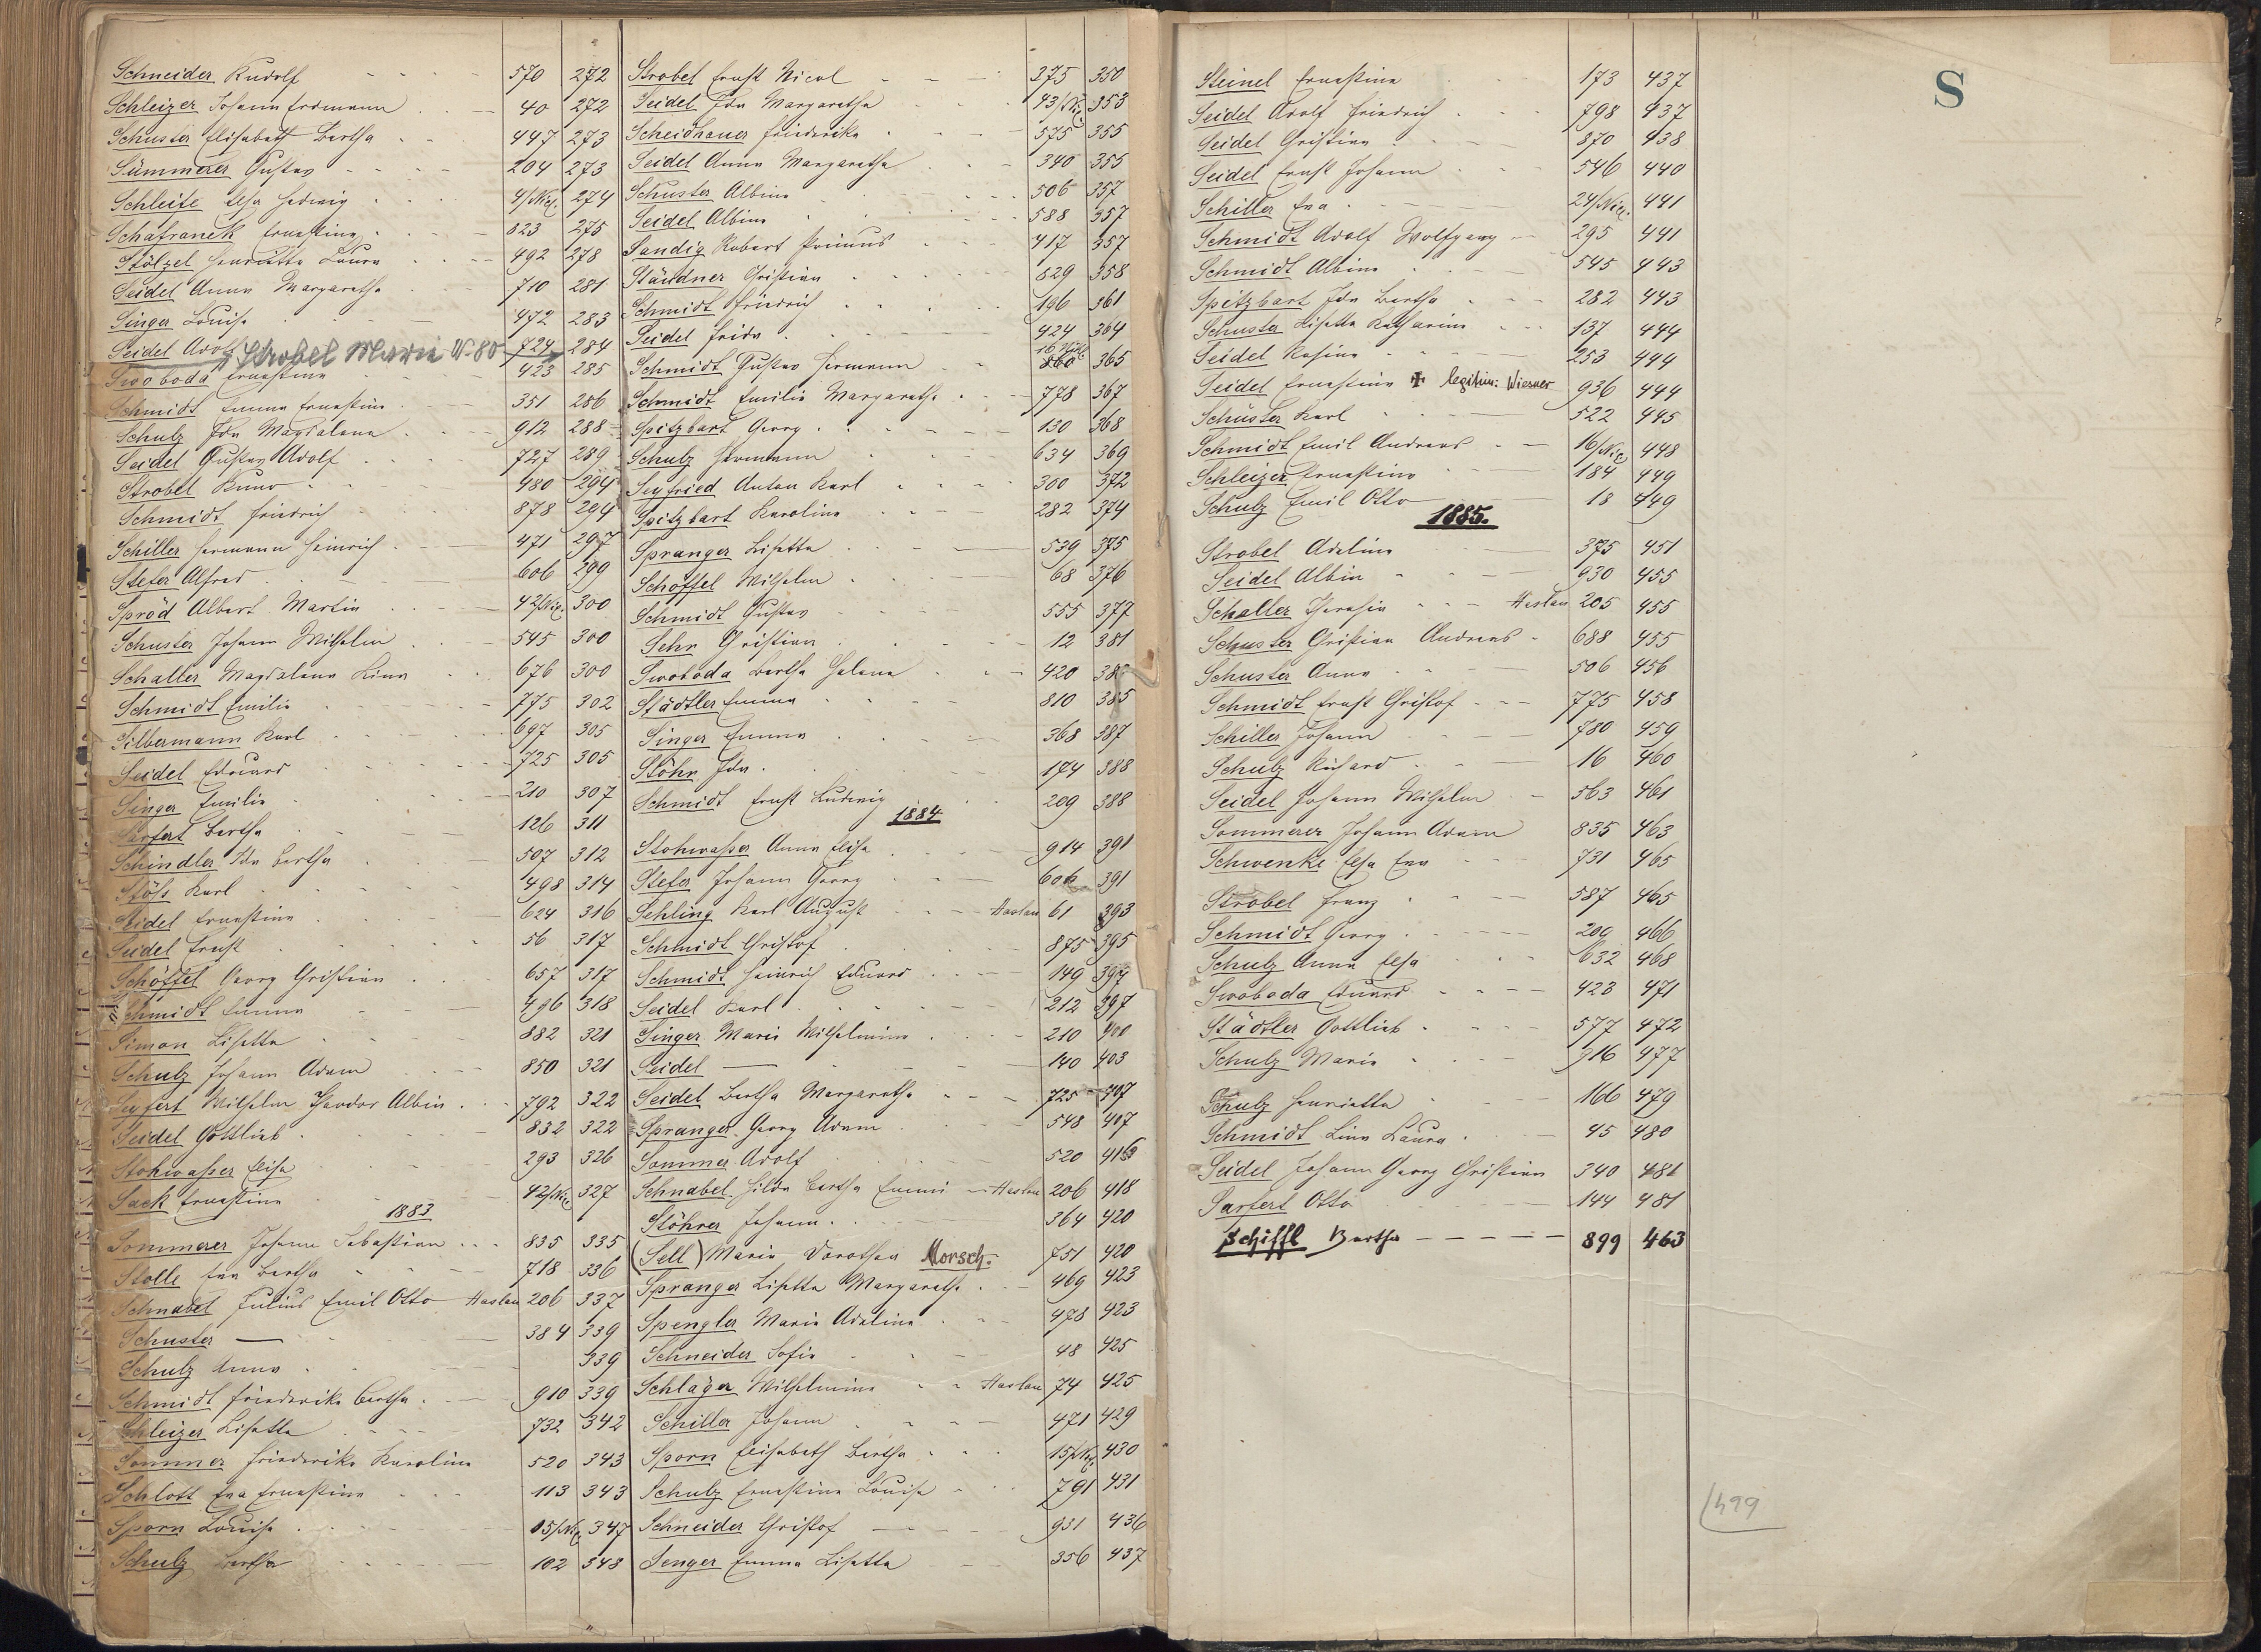 Schneider Rudolf 570 272
Schleizer Johann Erdmann 40 272
Schuster Elisabeth Bertha 447 273
Sümmerer Gustav 204 273
Schleite Elsa Hedwig 4/Nic. 274
Schafranek Ernestine 823 275
Stölzel Henrietta Laura 492 278
Seidel Anna Margaretha 710 281
Singer Louise 472 283
Seidel Adolf 724 284
Strobel Marie N. 80
Swoboda Ernestine 423 285
Schmidt Emma Ernestine 351 286
Schulz Ida Magdalena 912 288
Seidel Gustav Adolf 727 289
Strobel Kuno 480 294
Schmidt Friedrich 878 294
Schiller Hermann Heinrich 471 297
Stefer Alfred 606 299
Spröd Albert Martin 42/Nic. 300
Schuster Johann Wilhelm 545 300
Schaller Magdalena Lina 676 300
Schmidt Emilie 775 302
Silbermann Karl 697 305
Seidel Eduard 725 305
Singer Emilie 210 307
Sarfert Bertha 126 311
Schindler Ida Bertha 507 312
Stöß Karl 498 314
Seidel Ernestine 624 316
Seidel Ernst 56 317
Schöffel Georg Christian 657 317
Schmidt Emma 496 318
Simon Lisetta 882 321
Schulz Johann Adam 850 321
Seyfert Wilhelm Theodor Albin 792 322
Seidel Gottlieb 832 322
Stohwasser Elise 293 326
Sack Ernestine 42/Nic. 327
1883
Sommerer Johann Sebastian 835 335
Stolle Eva Bertha 718 336
Schnabel Julius Emil Otto Haslau 206 337
Schuster — 384 339
Schulz Anna 339
Schmidt Friederike Bertha 910 339
Schleizer Lisetta 732 342
Sommer Friederike Karoline 520 343
Schlott Eva Ernestine 113 343
Sporn Louise 15/Nic 347
Schulz Bertha 102 348
Strobel Ernst Nicol 375 350
Seidel Ida Margaretha 43/Nic. 353
Scheidhauer Friederike 575 355
Seidel Anna Margaretha 340 355
Schuster Albine 506 357
Seidel Albine 588 357
Sandig Robert Primus 417 357
Ständner Christian 829 358
Schmidt Friedrich 196 361
Seidel Frida 424 364
Schmidt Gustav Hermann 560 365
Schmidt Emilie Margaretha 778 367
Spitzbart Georg 130 368
Schulz Hermann 634 369
Seyfried Anton Karl 300 372
Spitzbart Karoline 282 374
Spranger Lisetta 539 375
Schöffel Wilhelm 68 376
Schmidt Gustav 555 377
Sehr Christian 12 381
Swoboda Bertha Helena 420
Städtler Emma 810 385
Singer Emma 368 387
Stöhr Ida 174 388
Schmidt Ernst Ludwig 209 388
1884
Stohwasser Anna Elise 914 391
Stefer Johann Georg 606 391
Sehling Karl August Haslau 61 393
Schmidt Christof 875 395
Schmidt Heinrich Eduard 149 397
Seidel Karl 212 397
Singer Marie Wilhelmine 210 400
Seidel — 140 403
Seidel Bertha Margaretha 725 407
Spranger Georg Adam 548 407
Sommer Adolf 520 416
Schnabel Hilda Bertha Emmi Haslau 206 418
Stöhrer Johann 364 420
(Sell) Marie Dorothea Morsch. 751 420
Spranger Lisetta Margaretha 469 423
Spengler Marie Adeline 478 423
Schneider Sofie 48 425
Schlager Wilhelmine Haslau 74 425
Schiller Johann 471 429
Sporn Elisabeth Bertha 15/Nic. 430
Schulz Ernestine Louise 791 431
Schneider Christof 931 436
Senger Emma Lisetta 356 437
Steinel Ernestine 173 437
Seidel Adolf Friedrich 798 437
Seidel Christine 870 438
Seidel Ernst Johann 546 440
Schiller Eva 24/Nic. 441
Schmidt Adolf Wolfgang 295 441
Schmidt Albine 545 443
Spitzbart Ida Bertha 282 443
Schuster Lisetta Katharine 137 444
Seidel Rosine 253 444
Seidel Ernestine ✠ legitim: Wiesner 936 444
Schuster Karl 522 445
Schmidt Emil Andreas 16/Nic 448
Schleizer Ernestine 184 449
Schulz Emil Otto 18 449
1885.
Strobel Adeline 375 451
Seidel Albin 930 455
Schaller Theresia Haslau 205 455
Schuster Christian Andreas 688 455
Schuster Anna 506 456
Schmidt Ernst Christof 775 458
Schiller Johann 780 459
Schulz Richard 16 460
Seidel Johann Wilhelm 563 461
Sommerer Johann Adam 835 463
Schwenke Elsa Eva 731 465
Strobel Franz 587 465
Schmidt Georg 209 466
Schulz Anna Elsa 632 468
Swoboda Eduard 423 471
Städtler Gottlieb 577 472
Schulz Marie 916 477
Schulz Henrietta 166 479
Schmidt Lina Laura 45 480
Seidel Johann Georg Christian 340 481
Sarfert Otto 144 481
Schiffl Bertha 899 463
S
499